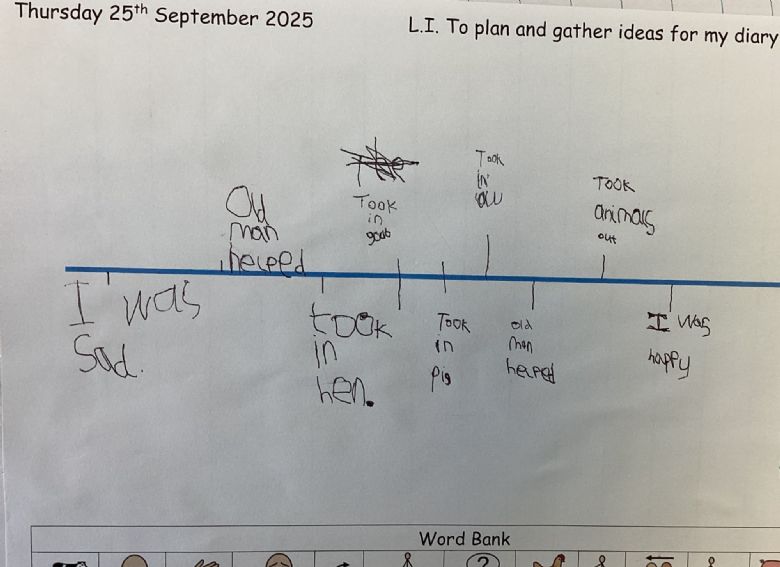 Thursday 25th September 2025
L.I. To plan and gather ideas for my diary
I was
Sad.
Old
man
helped
took
in
hen.
Took
in
goat
Took
in
pig
Took
in
old
man
helped
Took
animals
out
I was
happy
Word Bank